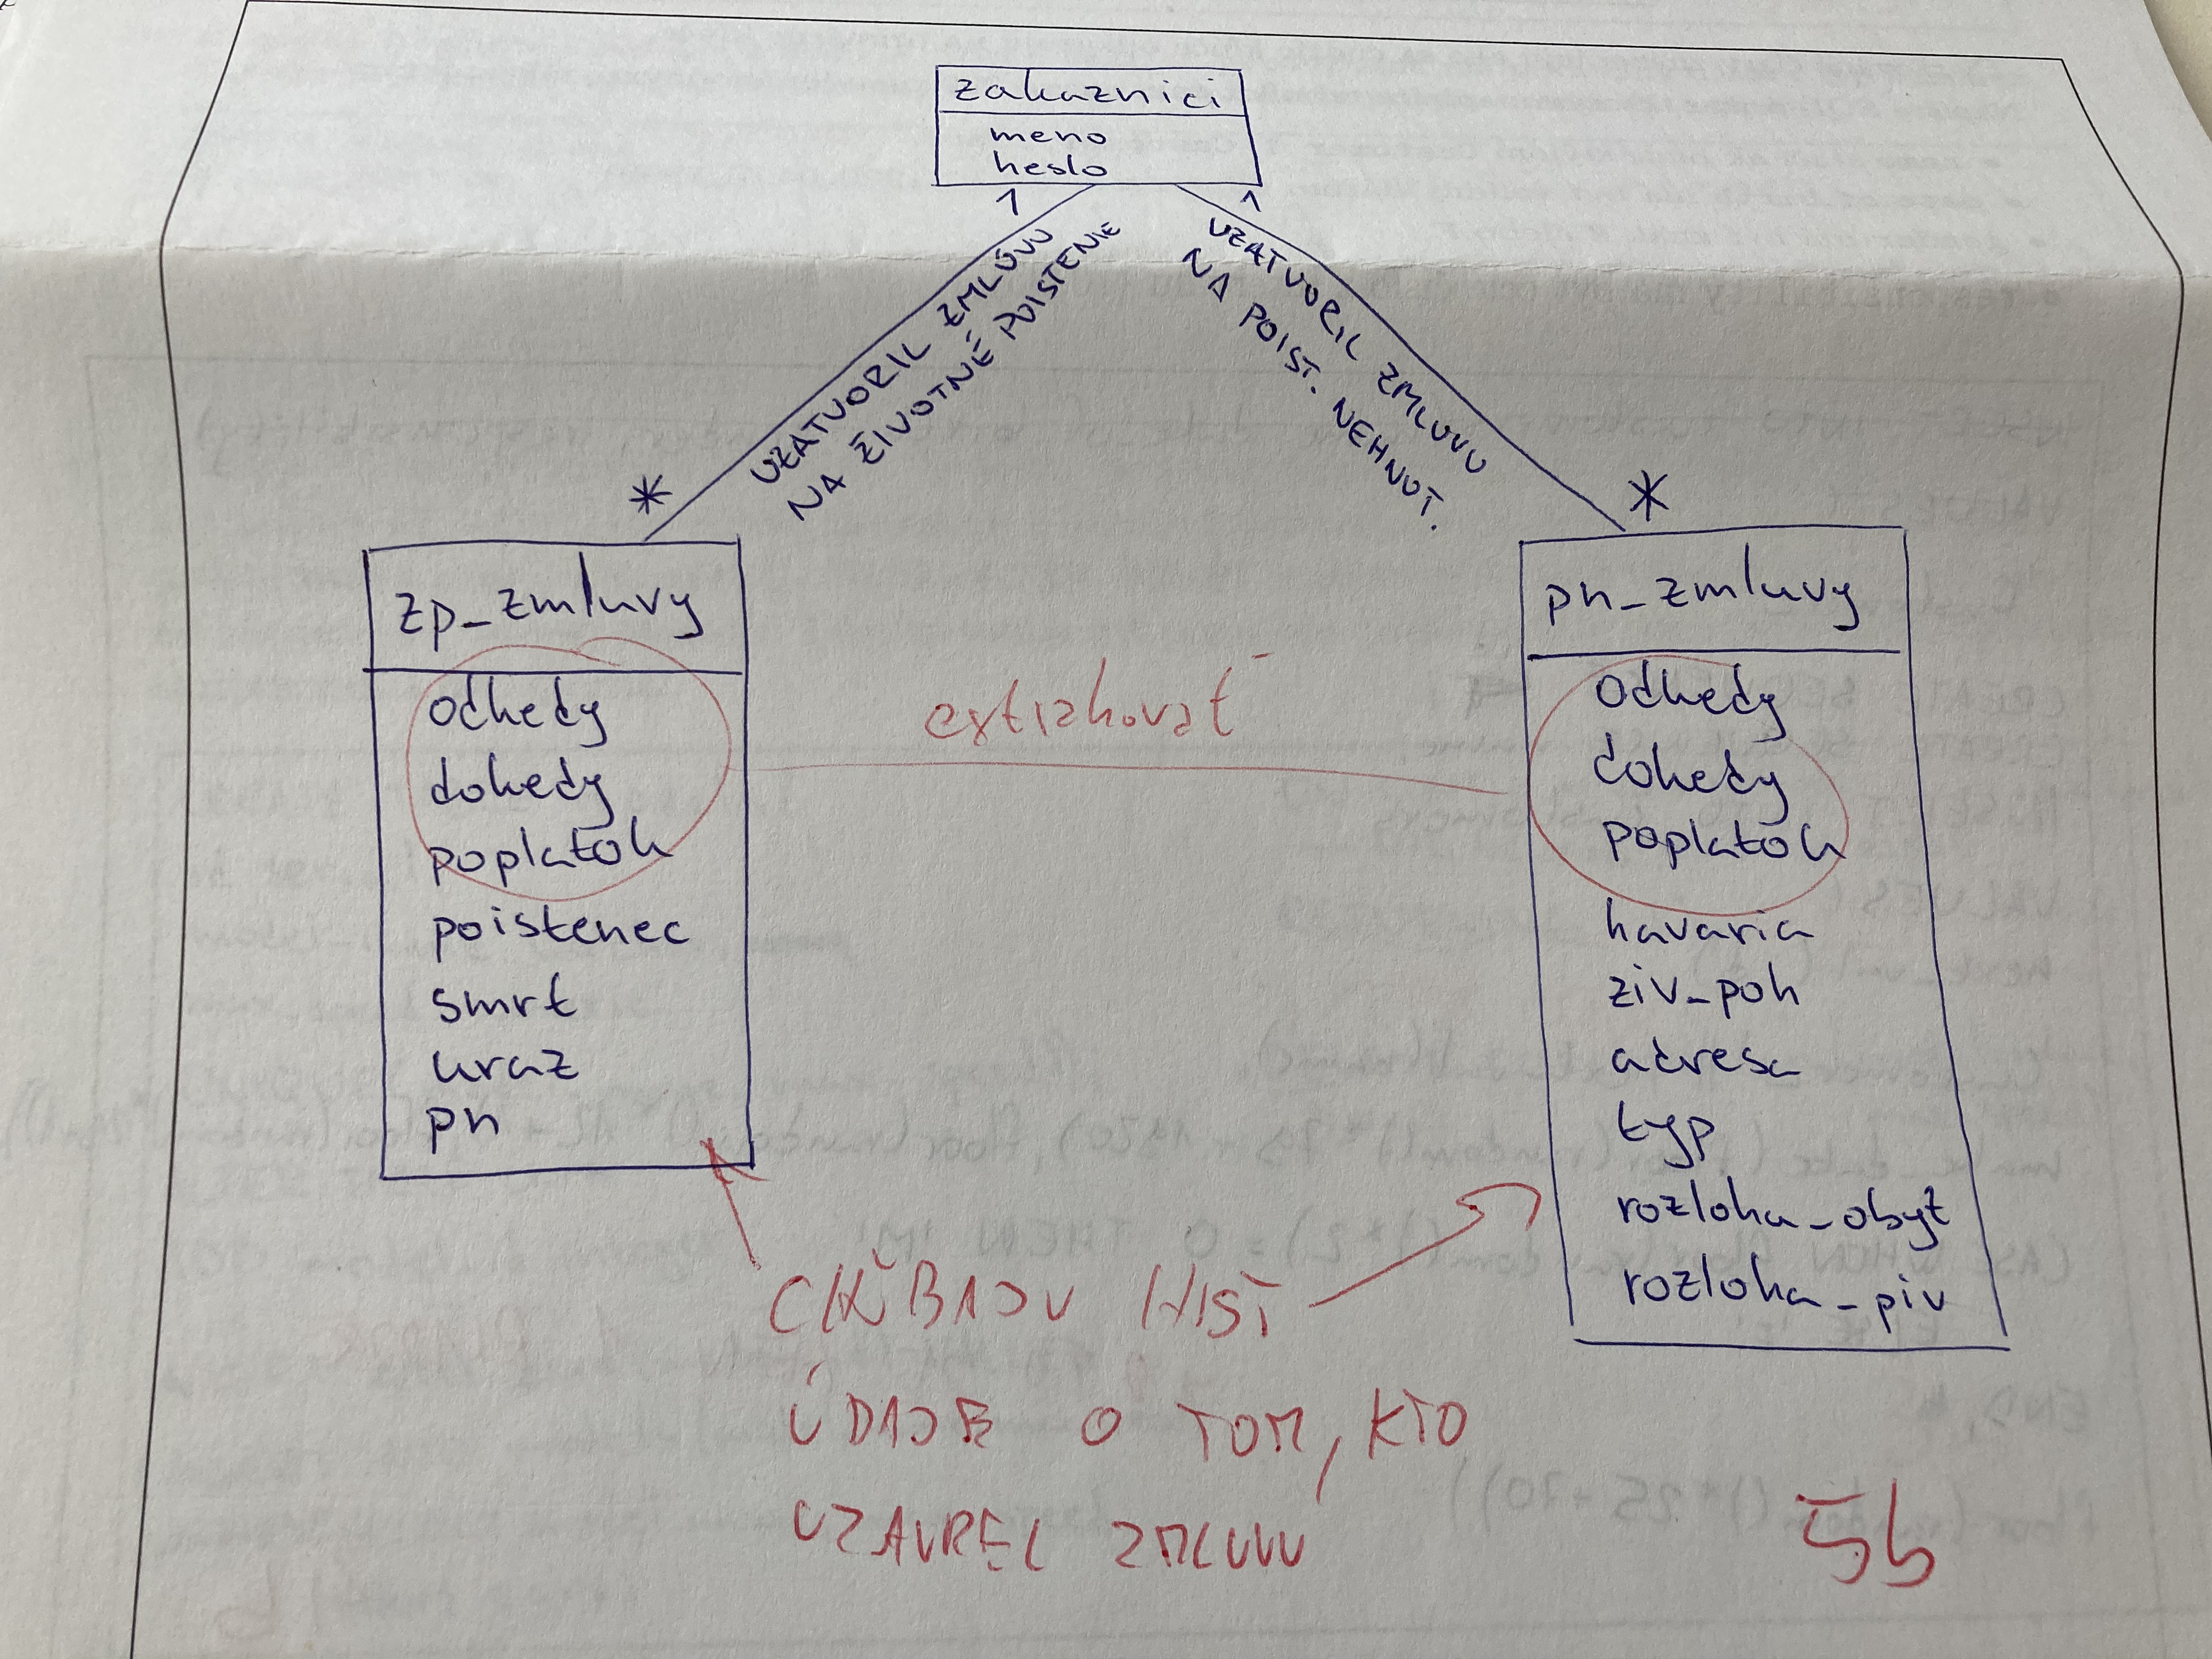 zakaznici
meno
heslo
1
1
UZATVORIL ZMLUVU
NA ŽIVOTNÉ POISTENIE
UZATVORIL ZMLUVU
NA POIST. NEHNUT.
*
*
zp_zmluvy
odkedy
dokedy
poplatok
poistenec
smrt
uraz
pn
pn_zmluvy
odkedy
dokedy
poplatok
havaria
ziv_poh
adresa
typ
rozloha_obyt
rozloha_piv
CHÝBAJÚ
ÚDAJE O TOM, KTO
UZAVREL ZMLUVU